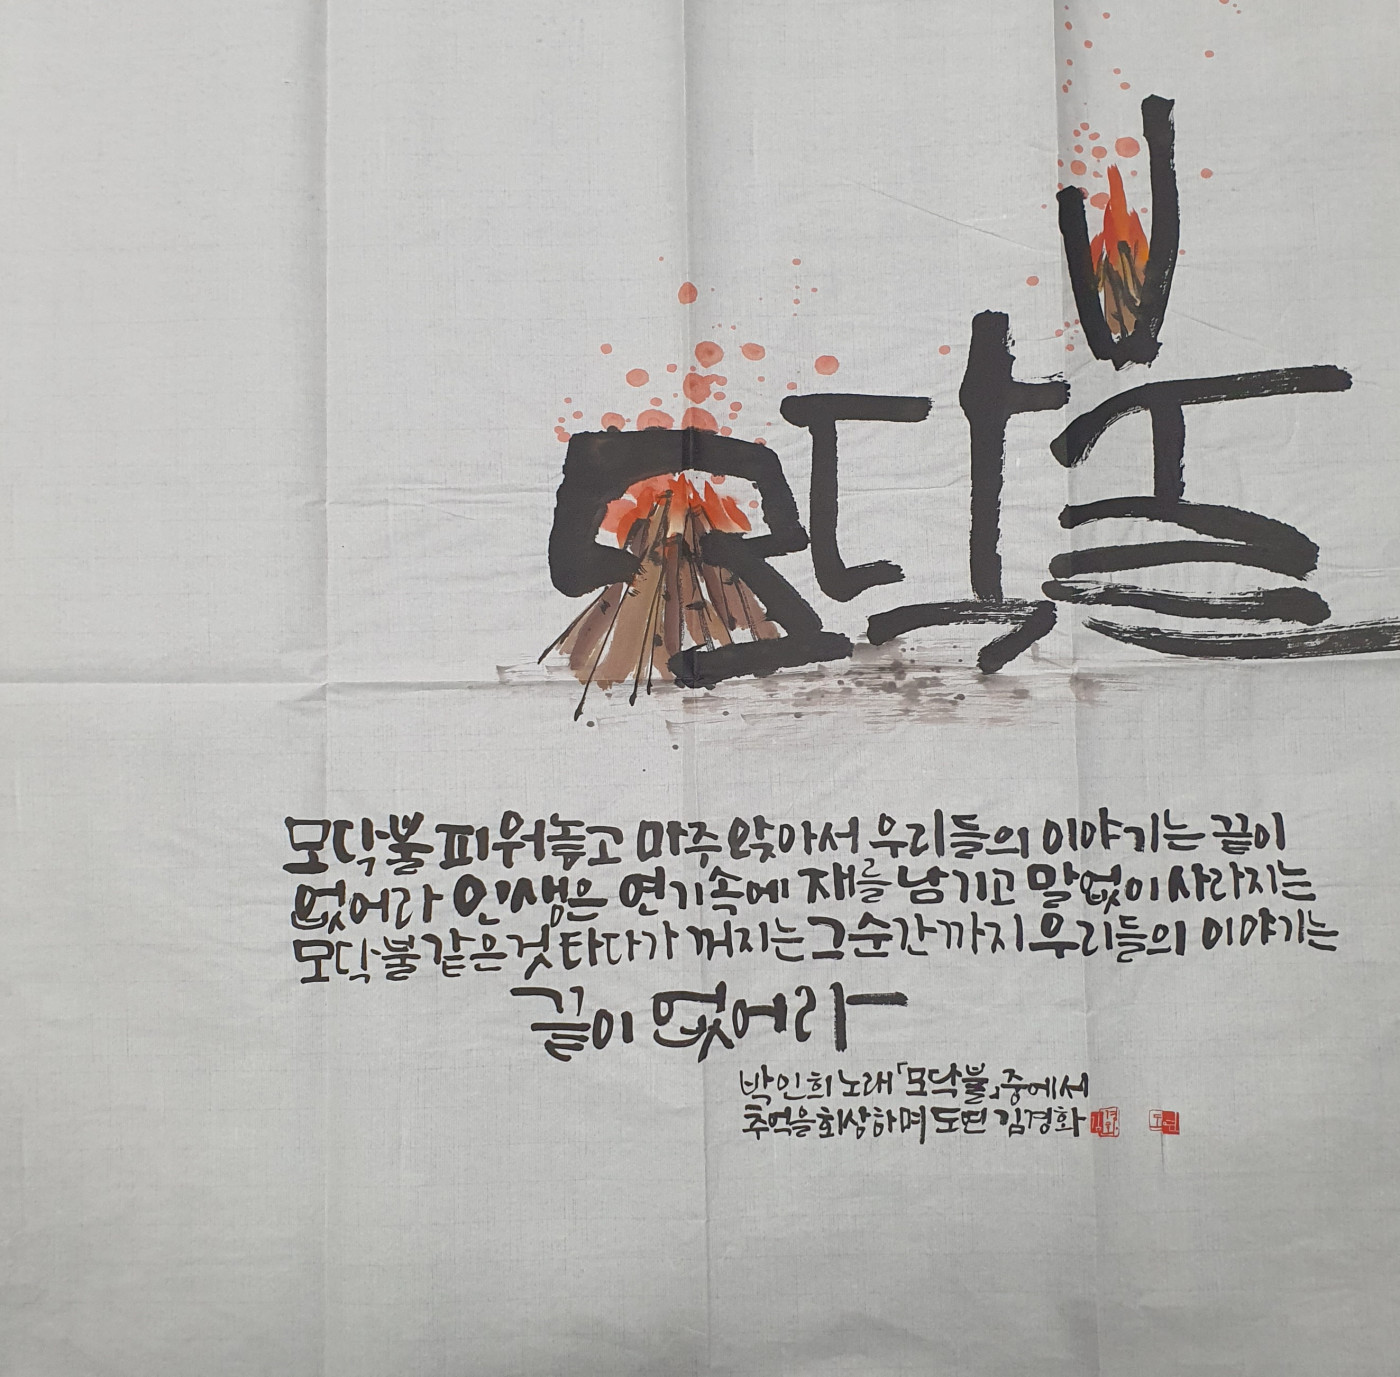 모닥불
모닥불 피워놓고 마주 앉아서 우리들의 이야기는 끝이
없어라 인생은 연기속에 재를 남기고 말없이 사라지는
모닥불 같은 것 타다가 꺼지는 그 순간까지 우리들의 이야기는
끝이 없어라
박인희 노래 「모닥불」 중에서
추억을 회상하며 도연 김경화